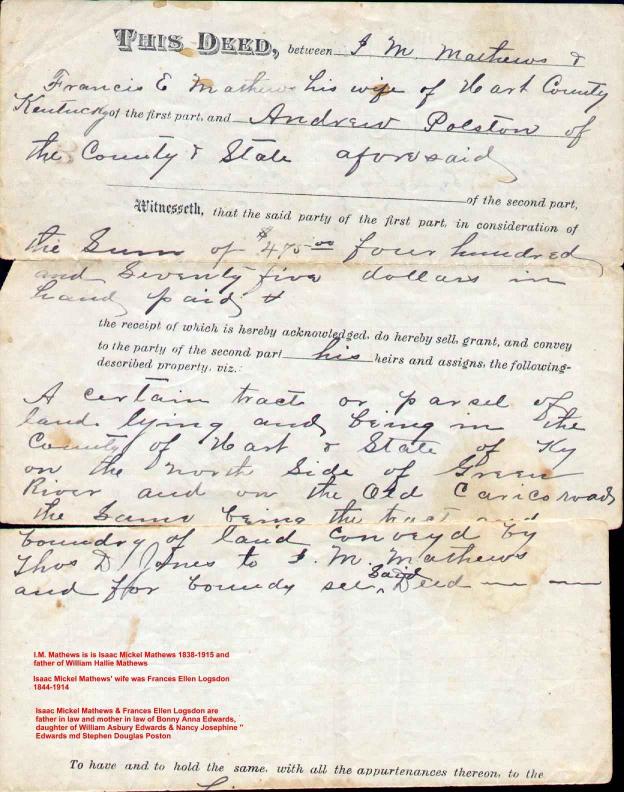 THIS DEED, between I M. Mathews &
Francis E Mathews his wife of Hart County
Kentucky of the first part, and Andrew Polston of
the County & State aforesaid
of the second part,
Witnesseth, that the said party of the first part, in consideration of
the Sum of $475.00 four hundred
and Seventy five dollars in
hand paid &
the receipt of which is hereby acknowledged, do hereby sell, grant, and convey
to the party of the second part his heirs and assigns, the following-
described property, viz:
A certain tract or parsel of
land lying and being in the
County of Hart & State of Ky
on the north Side of Green
River and on the Old Carico road
the Same being the tract and
boundry of land conveyd by
Thos D. Jones to I. M. Mathews
and for boundy see said Deed
I.M. Mathews is is Isaac Mickel Mathews 1838-1915 and
father of William Hallie Mathews
Isaac Mickel Mathews' wife was Frances Ellen Logsdon
1844-1914
Isaac Mickel Mathews & Frances Ellen Logsdon are
father in law and mother in law of Bonny Anna Edwards,
daughter of William Asbury Edwards & Nancy Josephine "
Edwards md Stephen Douglas Poston
To have and to hold the same, with all the appurtenances thereon, to the